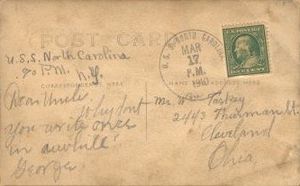 POST CARD
U.S.S. North Carolina
℅ P.M.
N.Y.
CORRESPONDENCE HERE
Dear Uncle
Why don't
you write once
in awhile.
George
U.S.S. NORTH CAROLINA
MAR
17
P.M.
1910
Mr Wm
2443 Thurman St
Cleveland
Ohio,